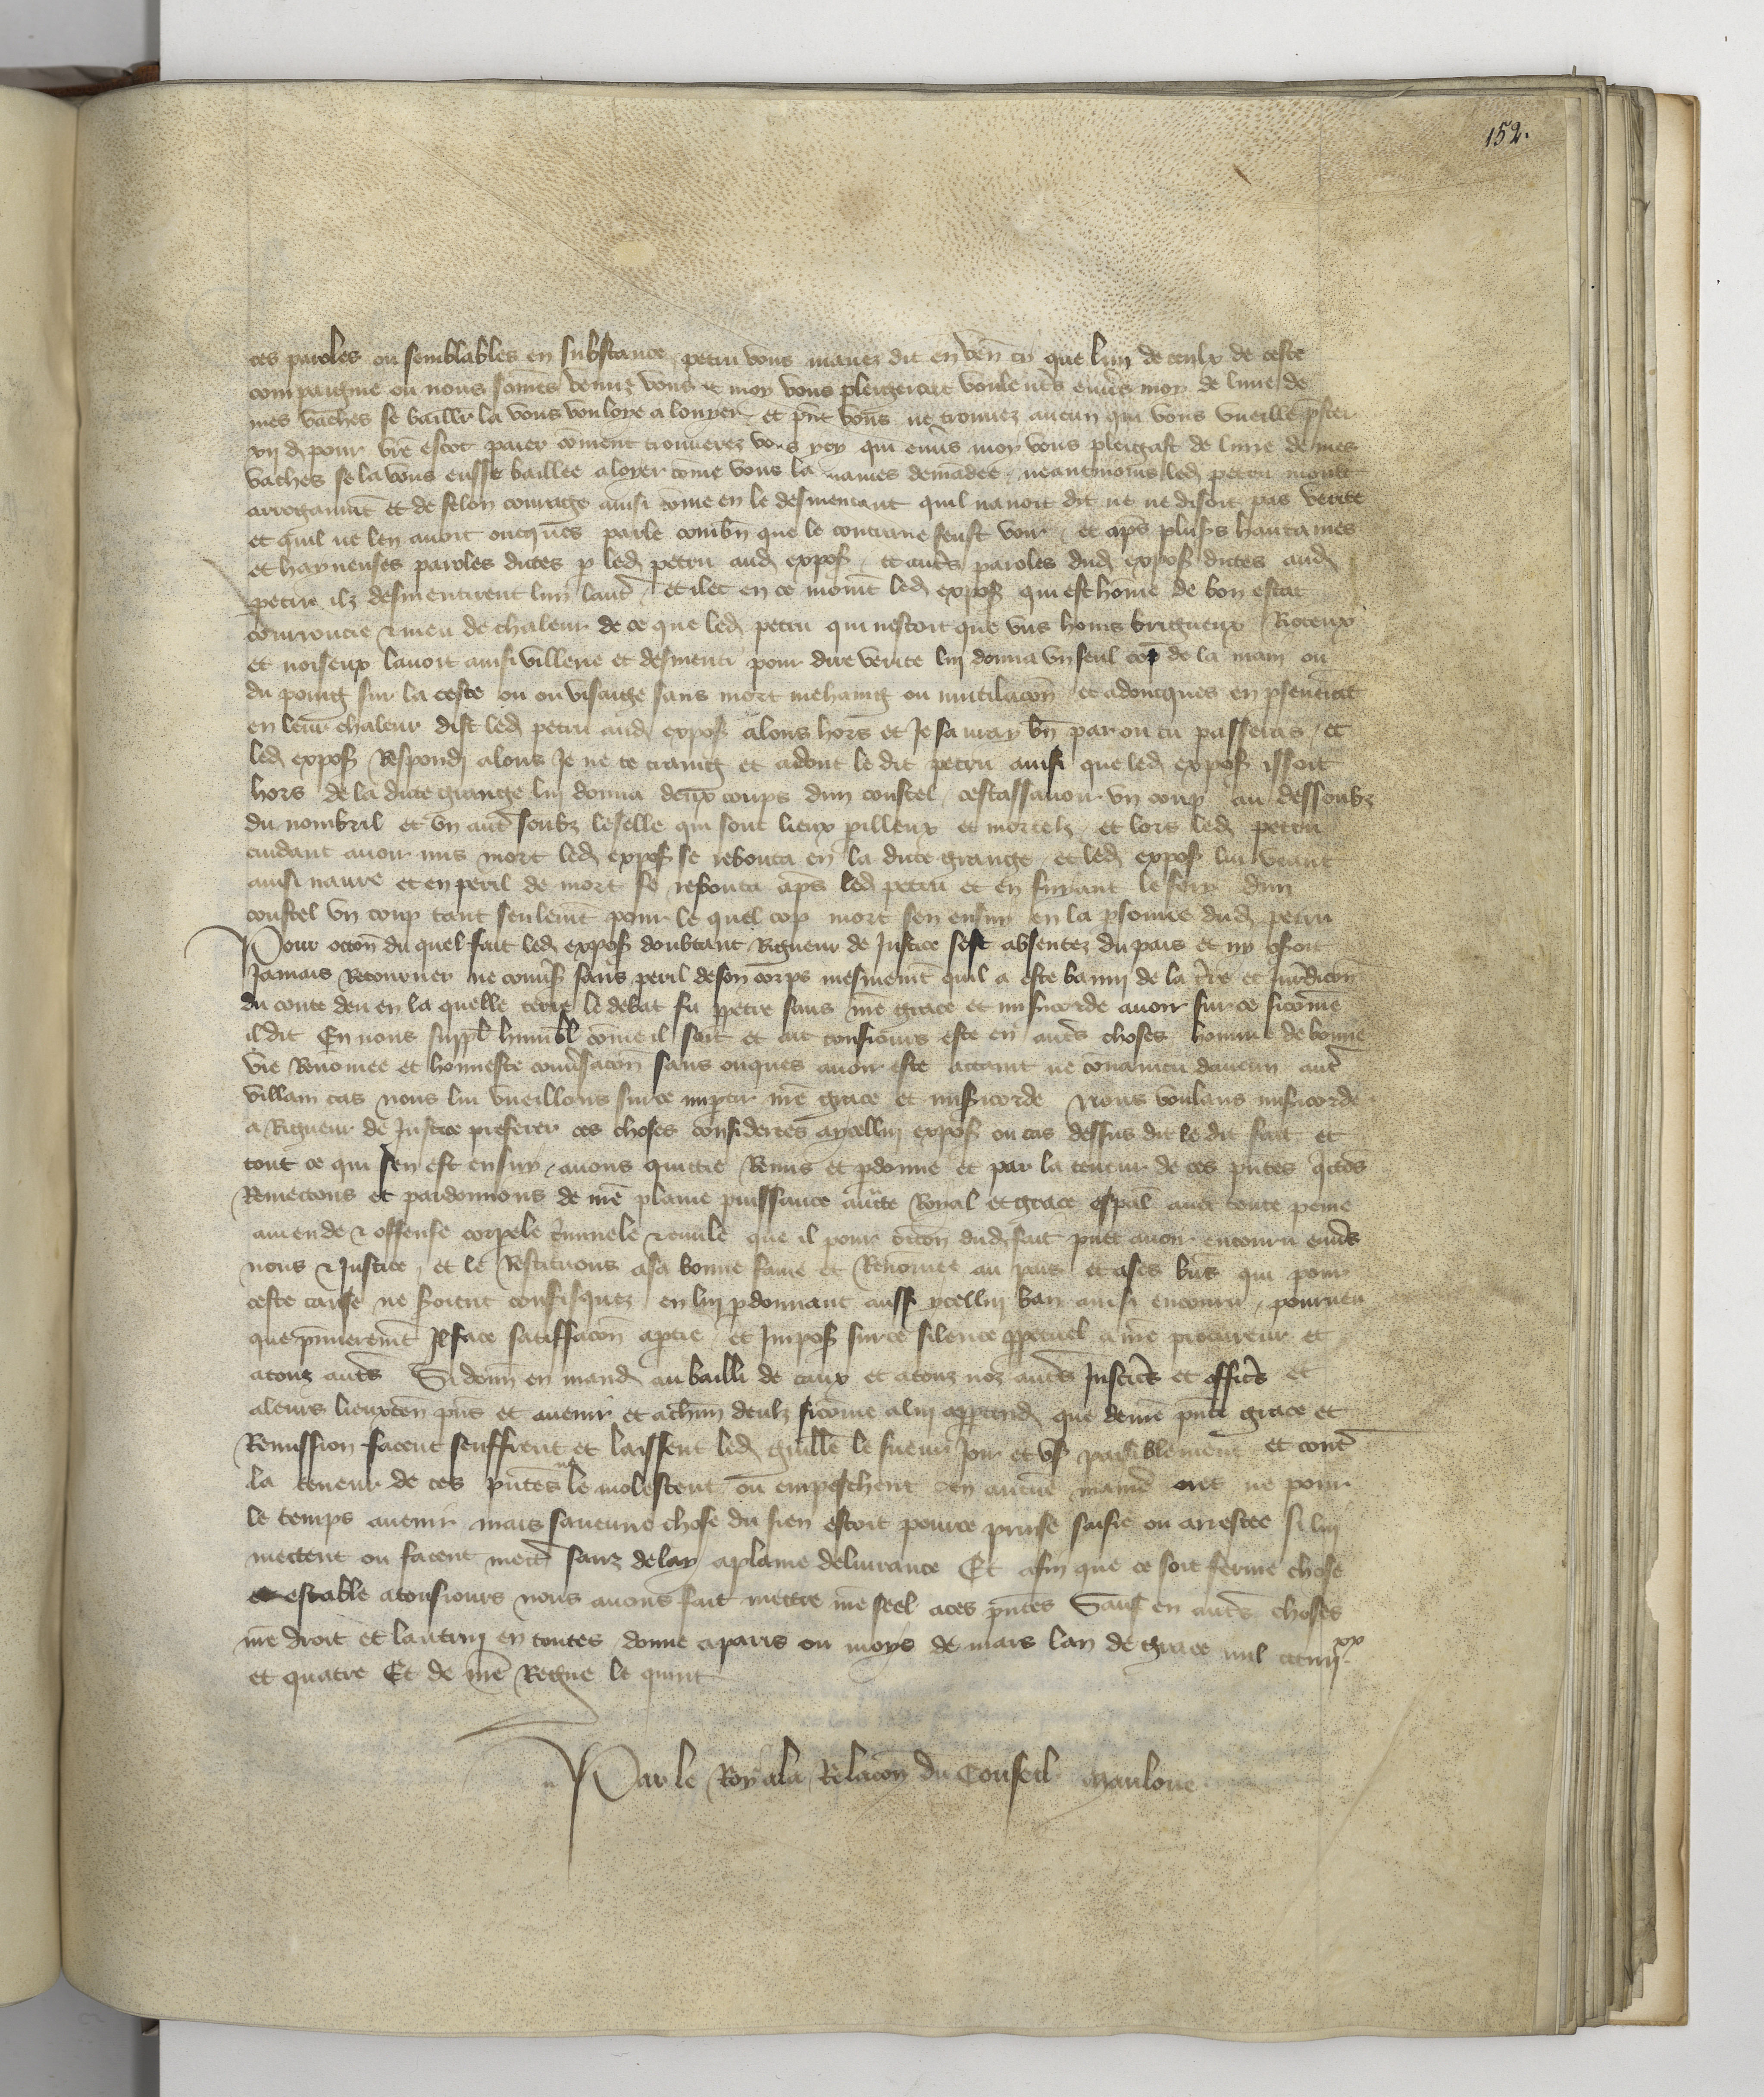 152.
ces paroles ou semblables en substance petru vous mavez dit en ven cy que lun de ceulx de ceste
compaignie ou nous somes venuz vous et moy vous pleigeroit voulent's envs moy de lune de
mes vaches se bailler la vous vouloye a louyer et pnt vous ne trouvez aucun qui vous vueille pster
xij d pour vre escot paier coment trouverez vous ycy qui envs moy vous pleigast de lune de mes
vaches se la vous eusse baillee a loyer come vous la mavies demadee neantmoins led petru moult
arrogaumt et de felon courage ainsi come en le desmentant quil navoit dit ne ne disoit pas verite
et quil ne len avoit oncques parle combn que le contraire feust voir et aps plus's hautaines
et haynenses paroles dictes p led petru aud expos et aut's paroles dud expos dictes aud
petru ilz desmentirent lun laut' et ilec en ce momt led expos qui est home de bon estat
courroucie & meu de chaleur de ce que led petru qui nestoit que uns homs brigueux Roteux
et noiseux lavoit ainsi villene et desmenti pour dire verite luy donna un seul cop de la main ou
du poing sur la teste ou ou visaige sans mort mehaing ou mutilacon et adoncques en psentemt
en leur chaleur dist led petru aud expos alons hors et Je sauray bn par ou tu passeras et
led expos Respondy alons Je ne te craing et adont le dit petru ainsi que led expos issoit
hors de la dicte grange luy donna deux coups dun coustel cestassavoir un coup au dessoubz
du nombril et un aut' soubz lesselle qui sont lieux pilleux et mortelz et lors led petru
cuidant avoir mis mort led expos se rebouta en la dicte grange et led expos lui veant
ainsi navre et en peril de mort se rebouta aps led petru et en suyant le fery dun
coustel un coup tant seulemt pour le quel cop mort sen ensuy en la psonne dud petru
Pour occon du quel fait led expos doubtant Rigueur de Justice sest absentez du pais et ny oseroit
Jamais Retourner ne convs sans peril de son corps mesmemt quil a este banny de la tre et Jurdicon
du conte deu en la quelle terre le debat fu ppetre sans nre grace et misicorde avoir sur ce sicome
il dit En nous suppl humbl come il soit et ait tousiours este en aut's choses homme de bonne
vie Renomee et honneste conv'sacon sans onques avoir este attaint ne convaincu daucun aut'
villain cas nous lui vueillons sur ce impartir nre grace et misicorde Nous voulans misicorde
a Rigueur de Justice preferer ces choses considerees a ycellui expos ou cas dessus dit le dit fait et
tout ce qui sen est ensuy avons quittie Remis et pdonne et par la teneur de ces pntes qttos
Remettons et pardonnons de nre plaine puissance auctte Royal et grace espal avec toute peine
amende & offense corpele criminele & civile que il pour occon dud fait puet avoir encouru envs
nous & Justice et le Restituons a sa bonne fame et Renomee au pais et a ses bns qui pour
ceste cause ne soient confisquez en luy pdonnant aussi ycelluy ban ainsi encouru pourveu
que pmieremt Il face satiffacon aptie et Impos sur ce silence ppetuel a nre procureur et
a touz aut's Si donn en mand au bailli de caux et a touz noz aut's Justic's et offic's et
a leurs lieuxten pns et avenir et a chun deulz sicome a luy append que de nre pnte grace et
Remission facent seuffrent et laissent led guille le sueur Jouir et us paisiblement et cont'
la teneur de ces pntes ne le molestent ou empeschent en aucune manie ores ne pour
le temps avenir mais saucune chose du sien estoit pource prinse saisie ou arrestee si luy
mettent ou facent mett' sanz delay a plaine delivrance Et afin que ce soit ferme chose
estable a tousiours nous avons fait mettre nre seel a ces pntes Sauf en aut's choses
nre droit et lautruy en toutes donne a paris ou moys de mars lan de grace mil ccciiij xx
et quatre Et de nre Regne le quint
Par le Roy a la Relacon du Conseil Mauloue